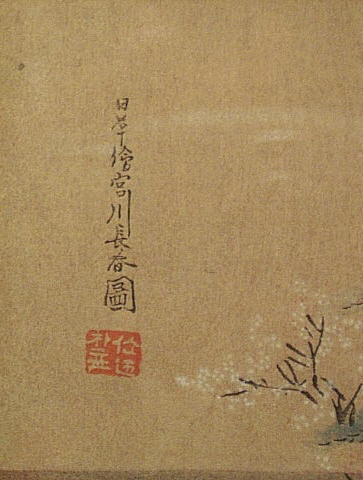 日本繪宮川長春圖